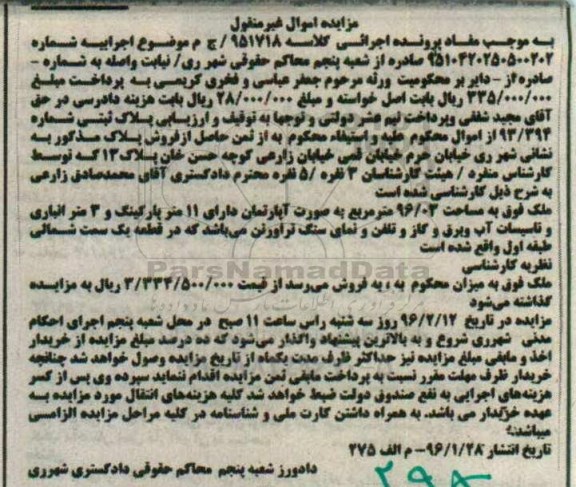 مزایده اموال غیرمنقول
به موجب مفاد پرونده اجرائی کلاسه ۹۵۱۷۱۸ / ج م موضوع اجراییه شماره
۹۵۱۰۴۲۰۲۵۰۵۰۰۲۰۲ صادره از شعبه پنجم محاکم حقوقی شهر ری/ نیابت واصله به شماره -
صادره از - دایر بر محکومیت ورثه مرحوم جعفر عباسی و فخری کریمی به پرداخت مبلغ
۳۳۵/۰۰۰/۰۰۰ ریال بابت اصل خواسته و مبلغ ۲۸/۰۰۰/۰۰۰ ریال بابت هزینه دادرسی در حق
آقای مجید شفقی وپرداخت نیم عشر دولتی و توجها به توقیف و ارزیابی پلاک ثبتی شماره
۹۳/۳۹۴ از اموال محکوم علیه و استیفاء محکوم به از ثمن حاصل ازفروش پلاک مذکور به
نشانی شهر ری خیابان حرم خیابان قمی خیابان زارعی کوچه حسن خان پلاک ۱۳ که توسط
کارشناس منفرد / هیئت کارشناسان ۳ نفره /۵ نفره محترم دادگستری آقای محمدصادق زارعی
به شرح ذیل کارشناسی شده است
ملک فوق به مساحت ۹۶/۰۳ مترمربع به صورت آپارتمان دارای ۱۱ متر پارکینگ و ۳ متر انباری
و تاسیسات آب وبرق و گاز و تلفن و نمای سنگ تراورتن می‌باشد که در قطعه یک سمت شمالی
طبقه اول واقع شده است
نظریه کارشناسی
ملک فوق به میزان محکوم به ، به فروش می‌رسد از قیمت ۳/۳۳۴/۵۰۰/۰۰۰ ریال به مزایده
گذاشته می‌شود
مزایده در تاریخ ۹۶/۲/۱۲ روز سه شنبه راس ساعت ۱۱ صبح در محل شعبه پنجم اجرای احکام
مدنی شهرری شروع و به بالاترین پیشنهاد واگذار می‌شود که ده درصد مبلغ مزایده از خریدار
اخذ و مابقی مبلغ مزایده نیز حداکثر ظرف مدت یکماه از تاریخ مزایده وصول خواهد شد چنانچه
خریدار ظرف مهلت مقرر نسبت به پرداخت مابقی ثمن مزایده اقدام ننماید سپرده وی پس از کسر
هزینه‌های اجرایی به نفع صندوق دولت ضبط خواهد شد کلیه هزینه‌های انتقال مورد مزایده به
عهده خریدار می باشد. به همراه داشتن کارت ملی و شناسنامه در کلیه مراحل مزایده الزامی
میباشد.
تاریخ انتشار ۹۶/۱/۲۸ – م الف ۲۷۵
دادورز شعبه پنجم محاکم حقوقی دادگستری شهرری
۲۹۸
ParsNamadData